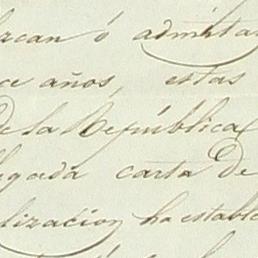 ó admita
ce años, estas
de la República
legada carta de
lizacion ha estable